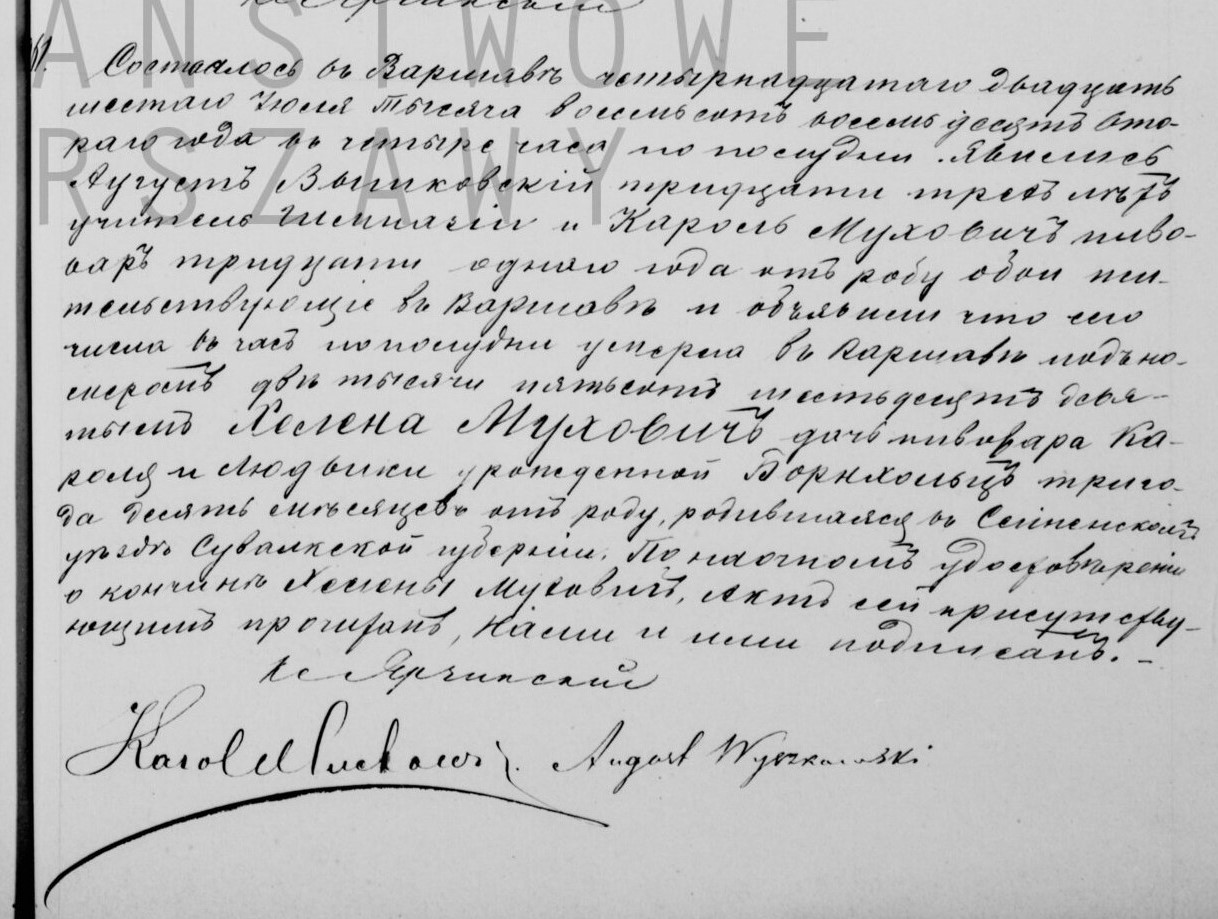 Кс Ярчинскій
ANSTWOWE
61. Состоялось въ Варшавѣ четырнадцатаго двадцать
шестаго Іюля тысяча восемьсотъ восемьдесятъ вто-
RSZAWY
раго года въ четыре часа по полудни. Явились
Аугустъ Вышковскій тридцати трехъ лѣтъ
учитель Гимназіи и Кароль Муховичъ пиво-
варъ тридцати одного года отъ роду обои жи-
тельствующіе въ Варшавѣ и объявили что сего
числа въ часъ по полудни умерла въ Варшавѣ подъ но-
меромъ двѣ тысячи пятьсотъ шестьдесятъ девя-
тымъ Хелена Муховичъ дочь пивовара Ка-
роля и Людвики урожденной Борнхольцъ три го-
да десять мѣсяцевъ отъ роду, родившаяся въ Сейненскомъ
уѣздѣ Сувалкской губерніи. По наочномъ удостовѣреніи
о кончинѣ Хелены Муховичъ, Актъ сей присутству-
ющимъ прочитанъ, Нами и ими подписанъ. –
Кс Ярчинскій
Karol Muchowicz. August Wyszkowski